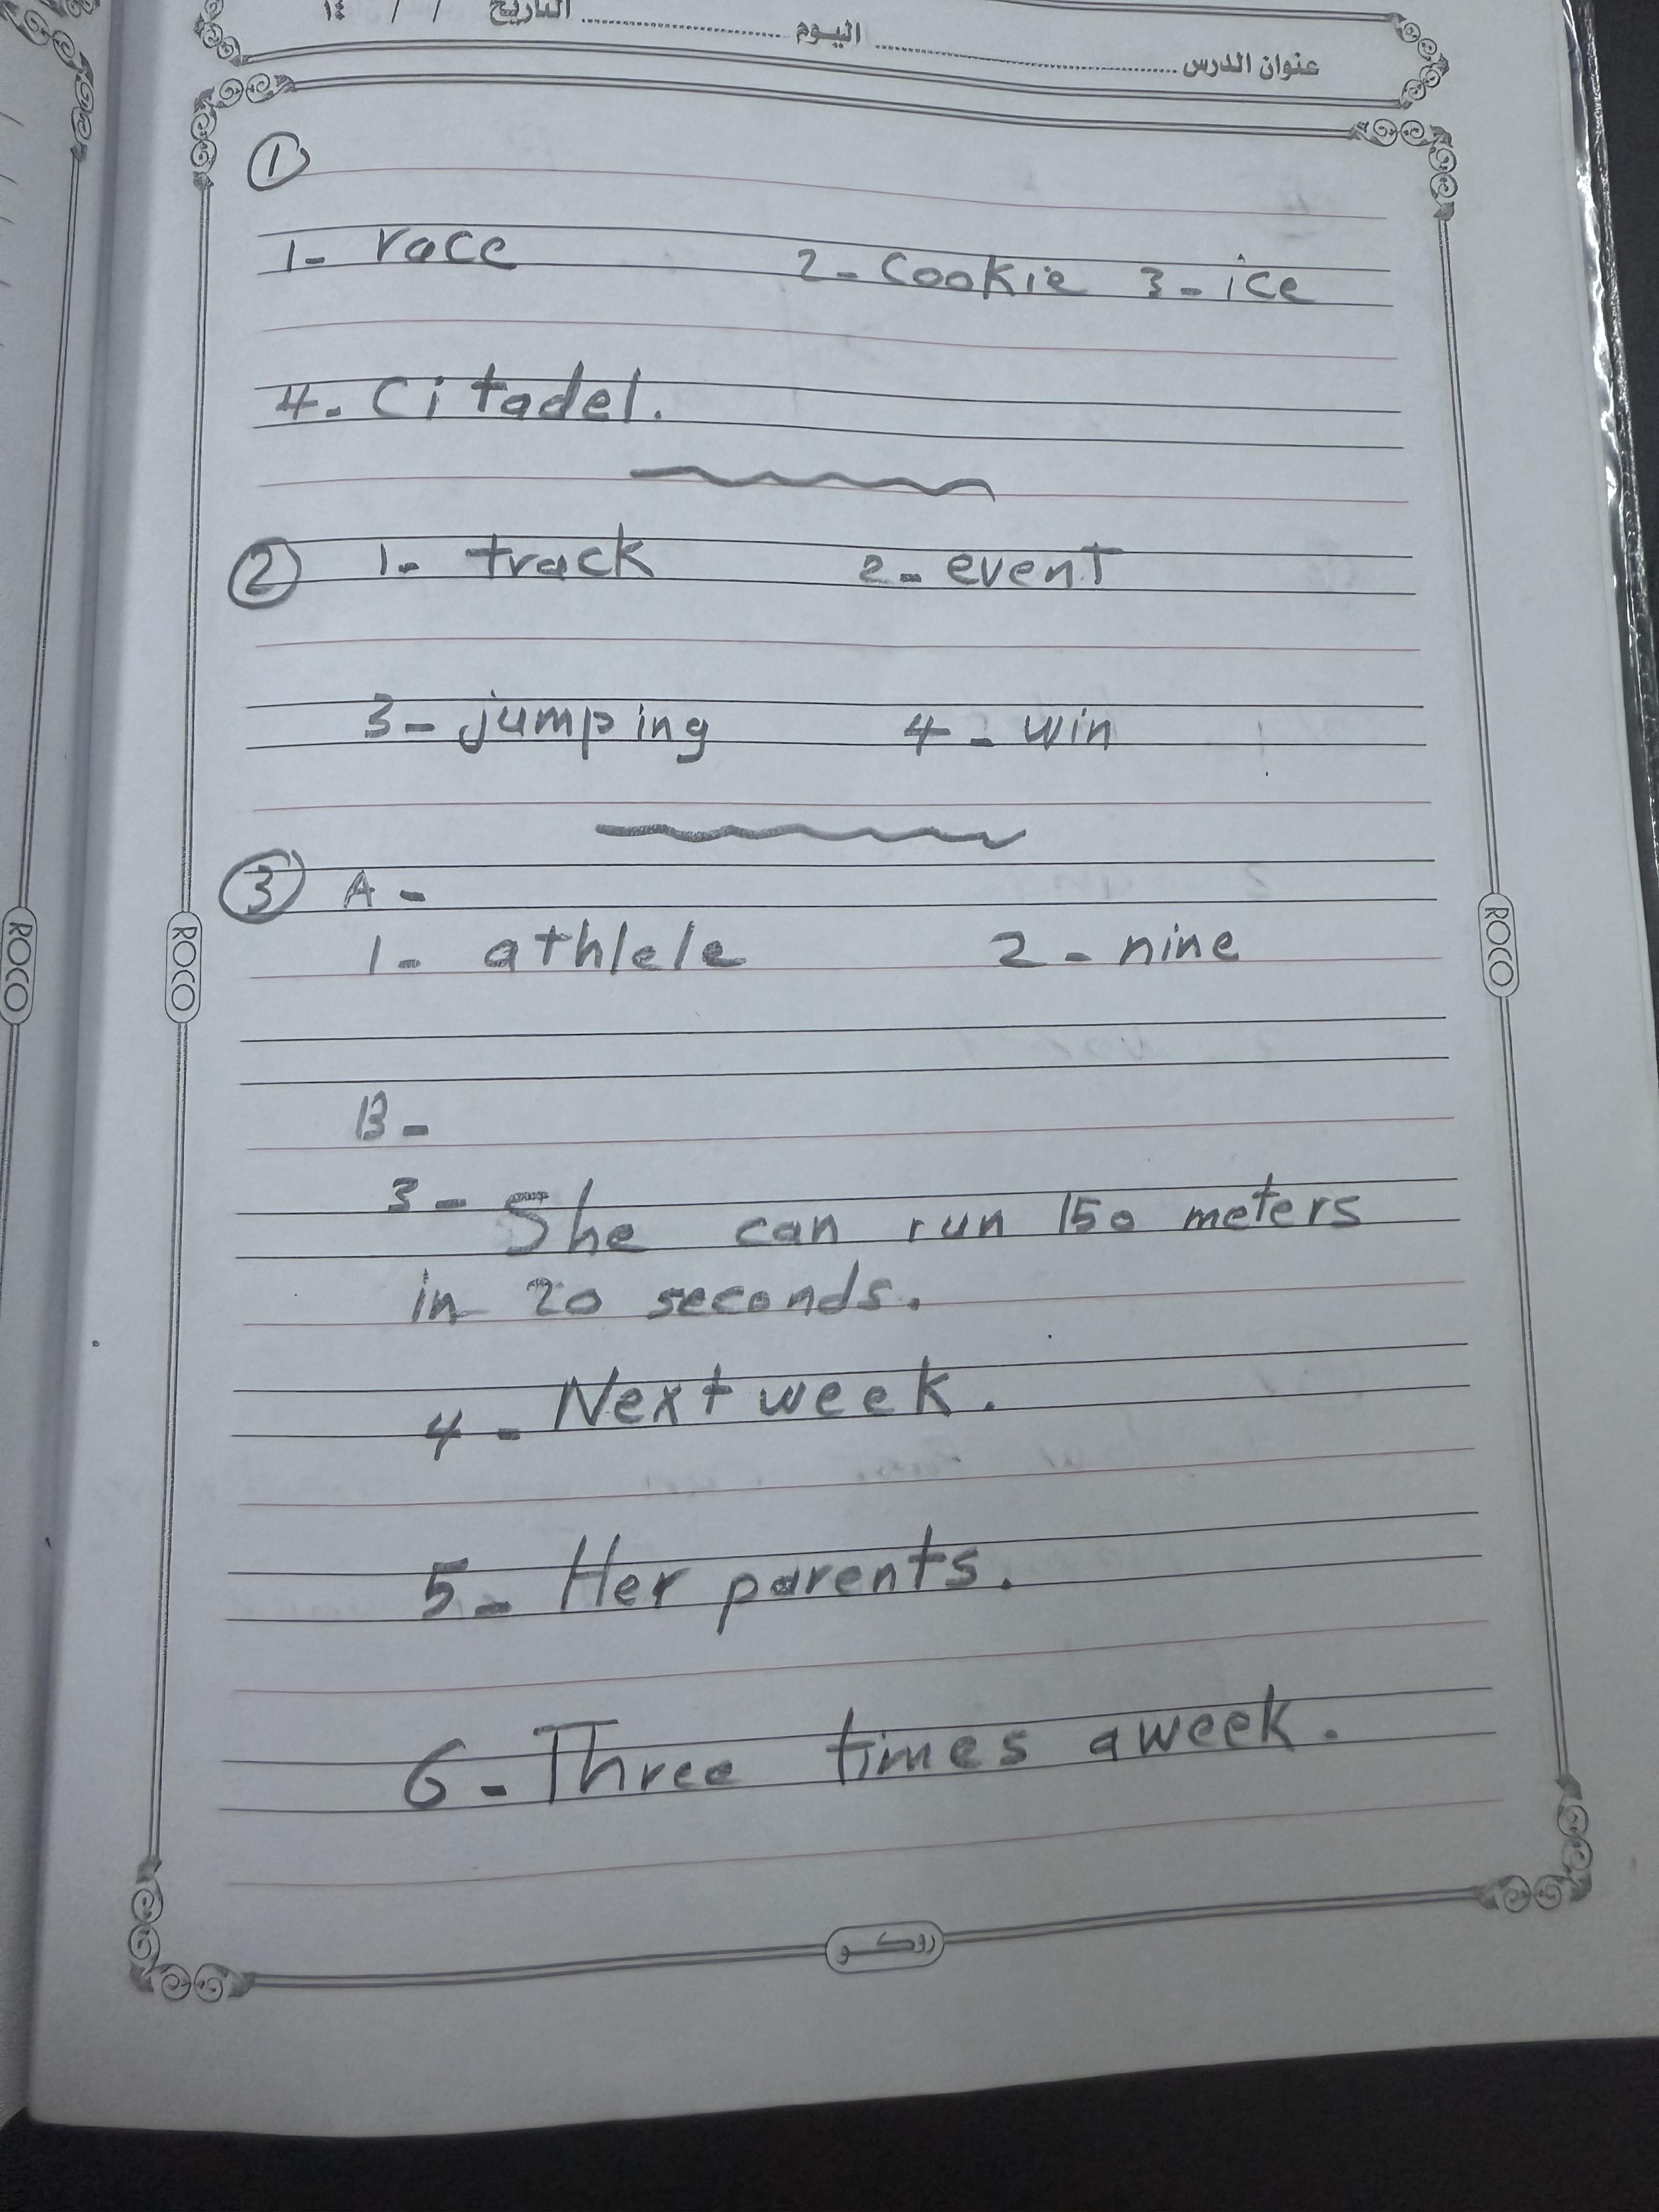 عنوان الدرس ........ اليوم ........ التاريخ / / ١٤
①
1- race 2- Cookie 3- ice
4- Citadel.
② 1- track 2- event
3- jumping 4- win
③ A-
1- athlele 2- nine
B-
3- She can run 150 meters
in 20 seconds.
4- Next week.
5- Her parents.
6- Three times aweek.
ROCO
ROCO
ROCO
روكو